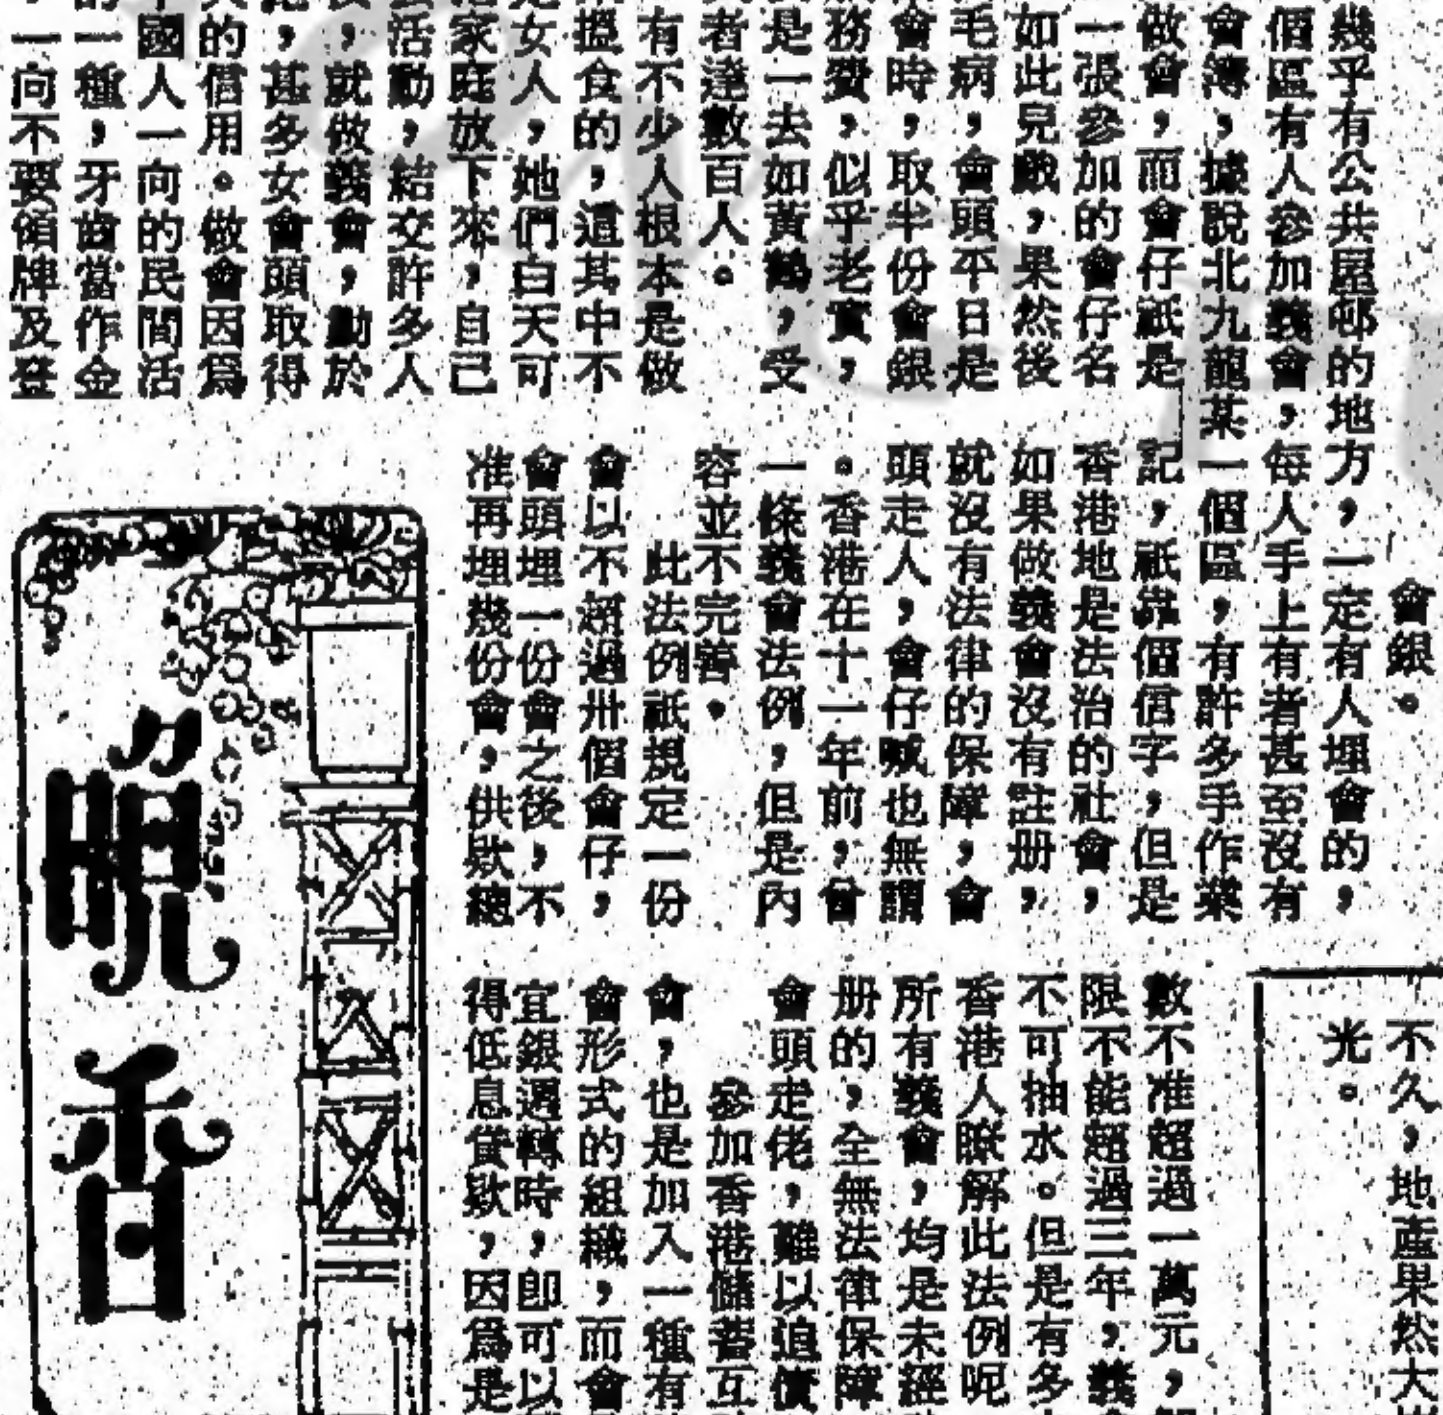 幾乎有公共屋邨的地方，一定有人埋會的，
個區有人參加義會，每人手上有者甚至沒有
會簿，據說北九龍某一個區，有許多手作業
做會，而會仔祇是
一張參加的會仔名
如此兒戲，果然後
毛病，會頭不日是
會時，取半份會銀
務費，似乎老實，
是一去如黃鶴，受
者達數百人。
有不少人根本是做
搵食的，這其中不
女人，她們白天可
家庭放下來，自己
活動，結交許多人
，就做義會，勤於
，甚多女會頭取得
的信用。做會因為
國人一向的民間活
一種，牙齒當作金
一向不要領牌及登
會銀。
記，祇靠個信字，但是
香港地是法治的社會，
如果做義會沒有註册，
就沒有法律的保障，會
頭走人，會仔喊也無謂
。香港在十一年前，曾
一條義會法例，但是內
容並不完善。
此法例祇規定一份
會以不超過卅個會仔，
會頭埋一份會之後，不
准再埋幾份會，供欵總
數不准超過一萬元，
限不能超過三年，義
不可抽水。但是有多
香港人瞭解此法例呢
所有義會，均是未經
册的，全無法律保障
會頭走佬，難以追債
參加香港儲蓄互
會，也是加入一種有
會形式的組織，而會
宜銀週轉時，即可以
得低息貸欵，因為是
不久，地產果然大
光。
晚香